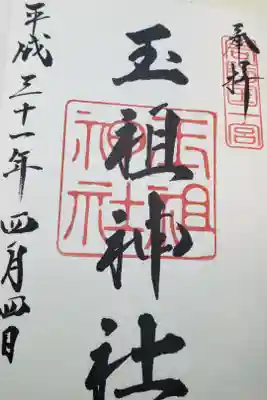 奉拝
周防一宮
玉祖神社
玉祖神社
平成三十一年四月四日